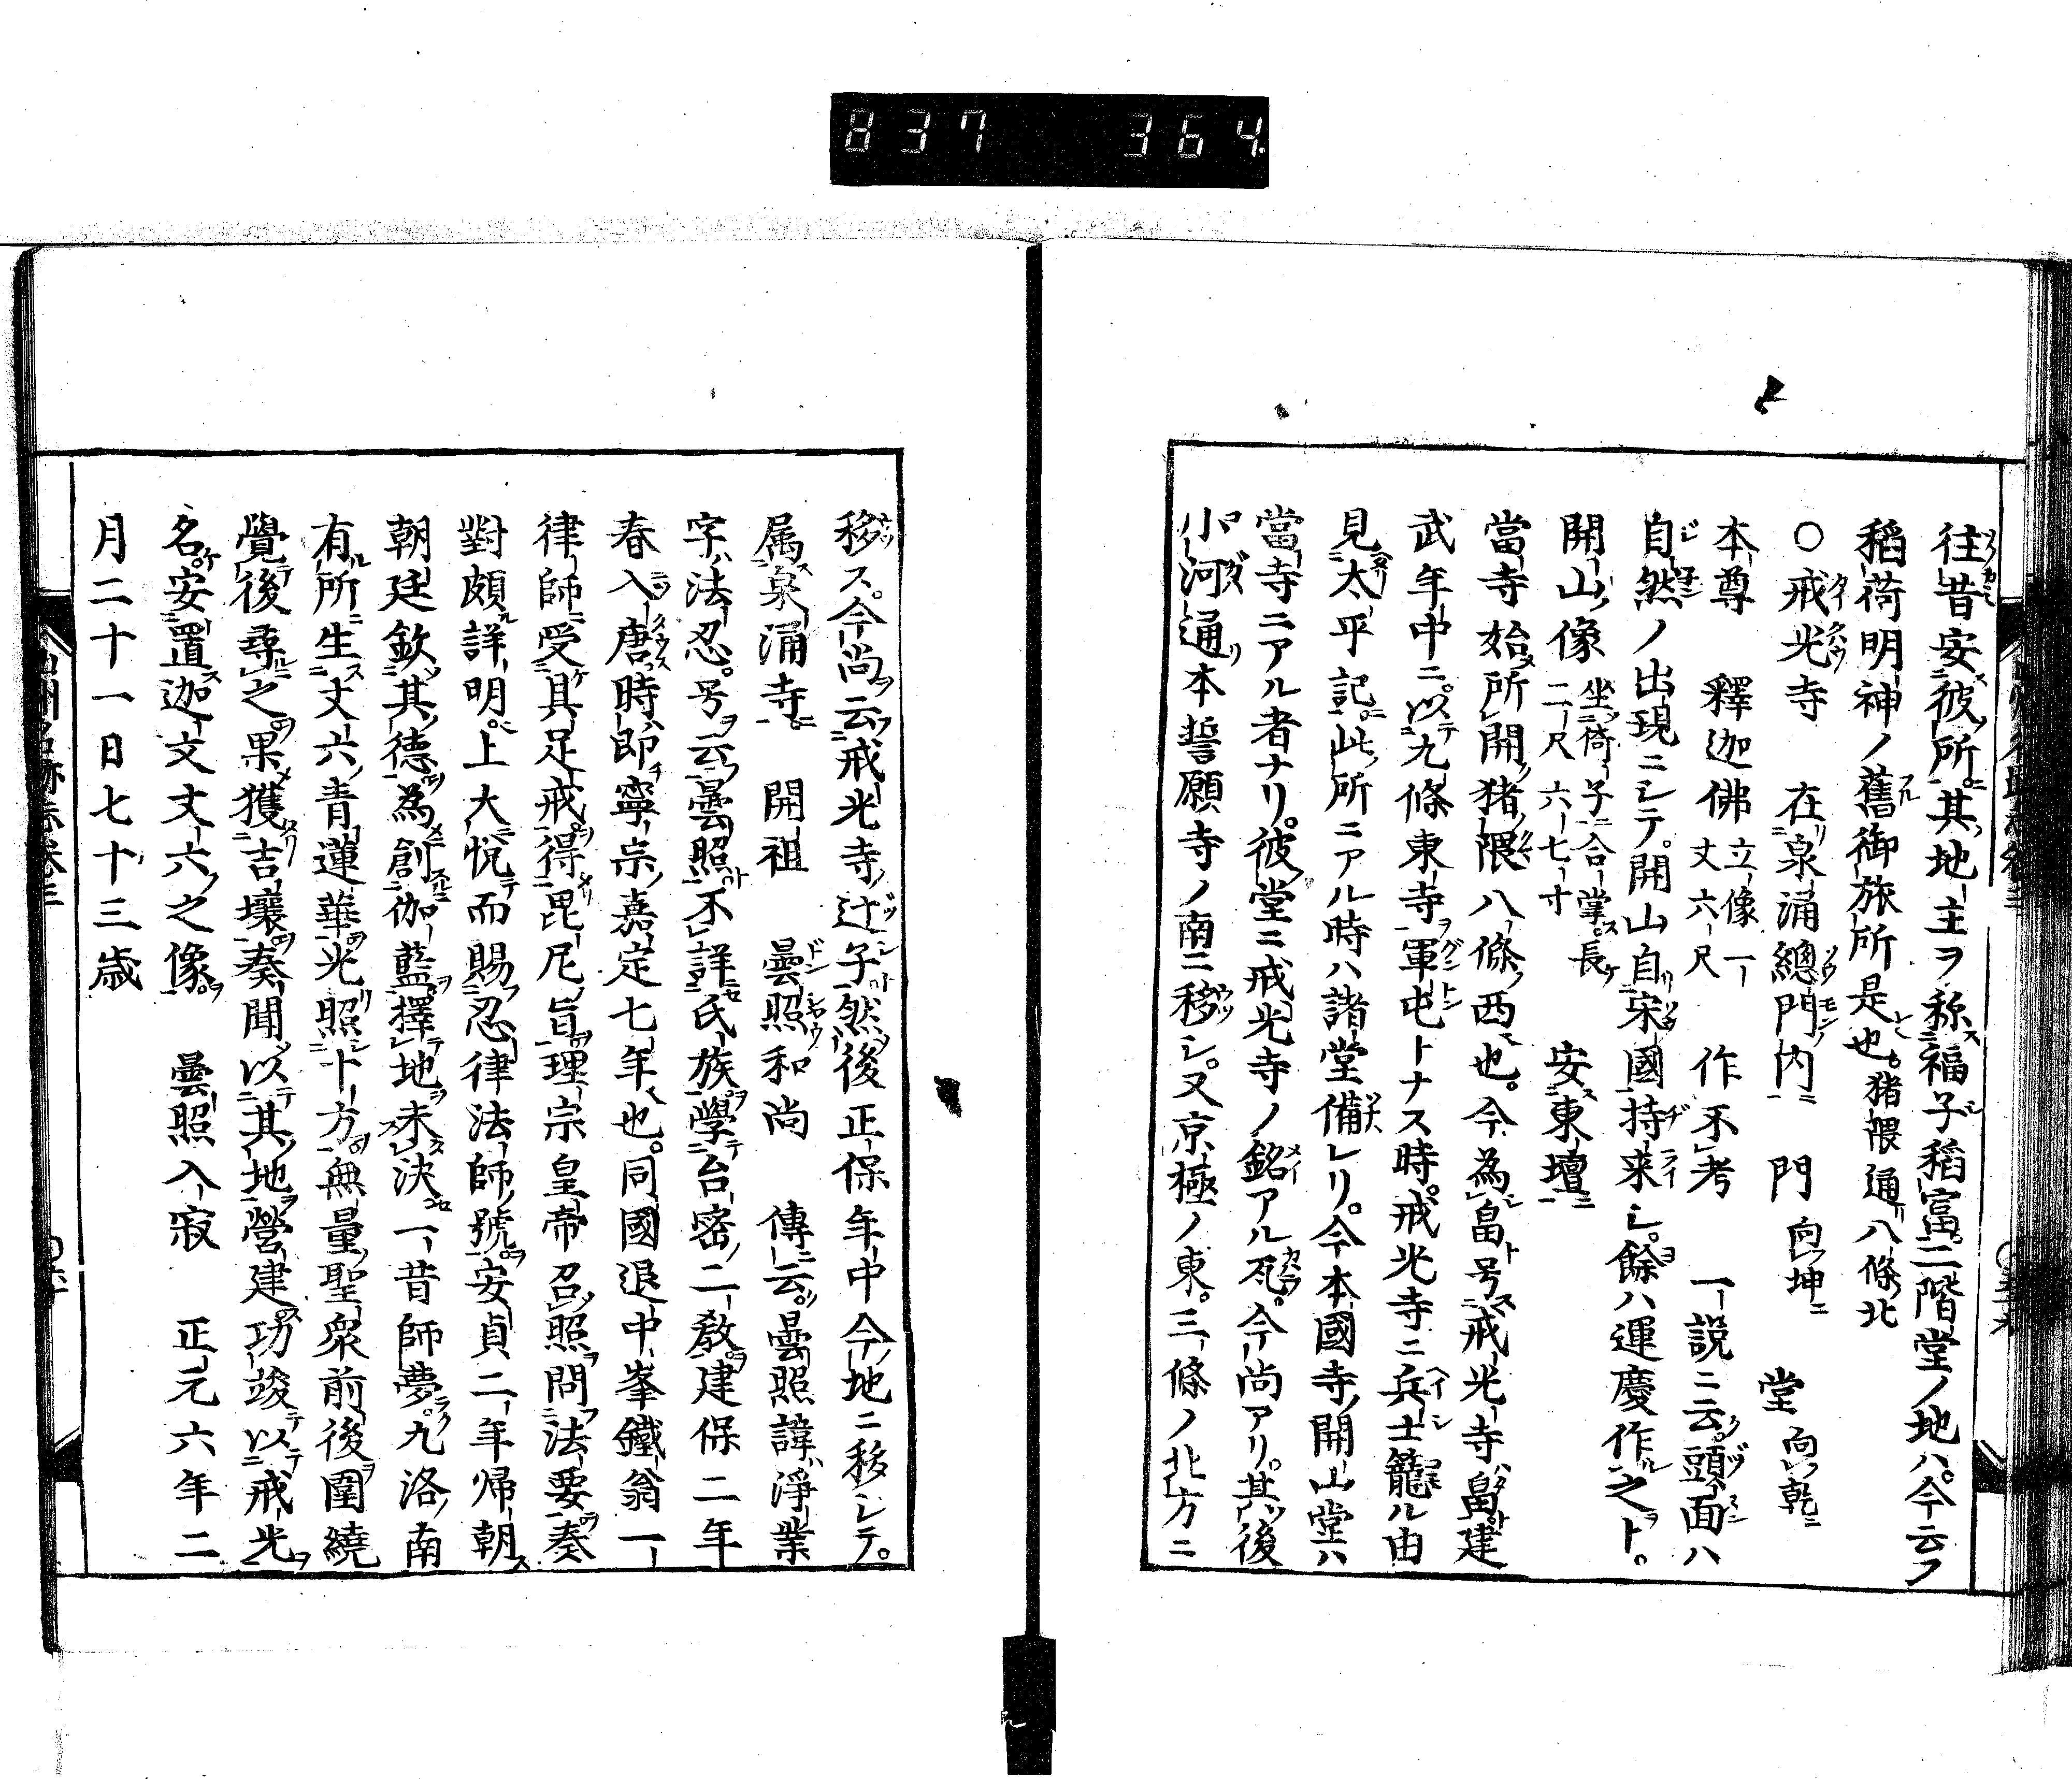 837 364
往昔安彼所其地主ヲ称福子稻富二階堂ノ地ハ今云フ
稻荷明神ノ舊御旅所是也猪隈通八條北
○戒光寺 在泉涌總門内 門向坤 堂向乾
本尊 釋迦佛 立像一丈六尺 作不考 一説ニ云頭面ハ
自然ノ出現ニシテ開山自宋國持來シ餘ハ運慶作之ト
開山像 坐倚子合掌長二尺六七寸 安東壇
當寺始所開猪隈八條西也今為畠号戒光寺畠建
武年中ニ以九條東寺軍屯トナス時戒光寺ニ兵士籠ル由
見太平記此所ニアル時ハ諸堂備レリ今本國寺開山堂ハ
當寺ニアル者ナリ彼堂ニ戒光寺ノ銘アル瓦今尚アリ其後
小河通本誓願寺ノ南ニ移シ又京極ノ東三條ノ北方ニ
移ス今尚云戒光寺辻子然後正保年中今地ニ移シテ
属泉涌寺 開祖 曇照和尚 傳云曇照諱淨業
字法忍号云曇照不詳氏族學台密二教建保二年
春入唐時即寧宗嘉定七年也同國退中峯鐵翁一
律師受具足戒得毘尼旨理宗皇帝召照問法要奏
對頗詳明上大悦而賜忍律法師號安貞二年帰朝
朝廷欽其德為創伽藍擇地未決一昔師夢九洛南
有所生丈六青蓮華光照十方無量聖衆前後圍繞
覺後尋之果獲吉壤奏聞以其地營建功竣以戒光
名安置迦文丈六之像 曇照入寂 正元六年二
月二十一日七十三歳